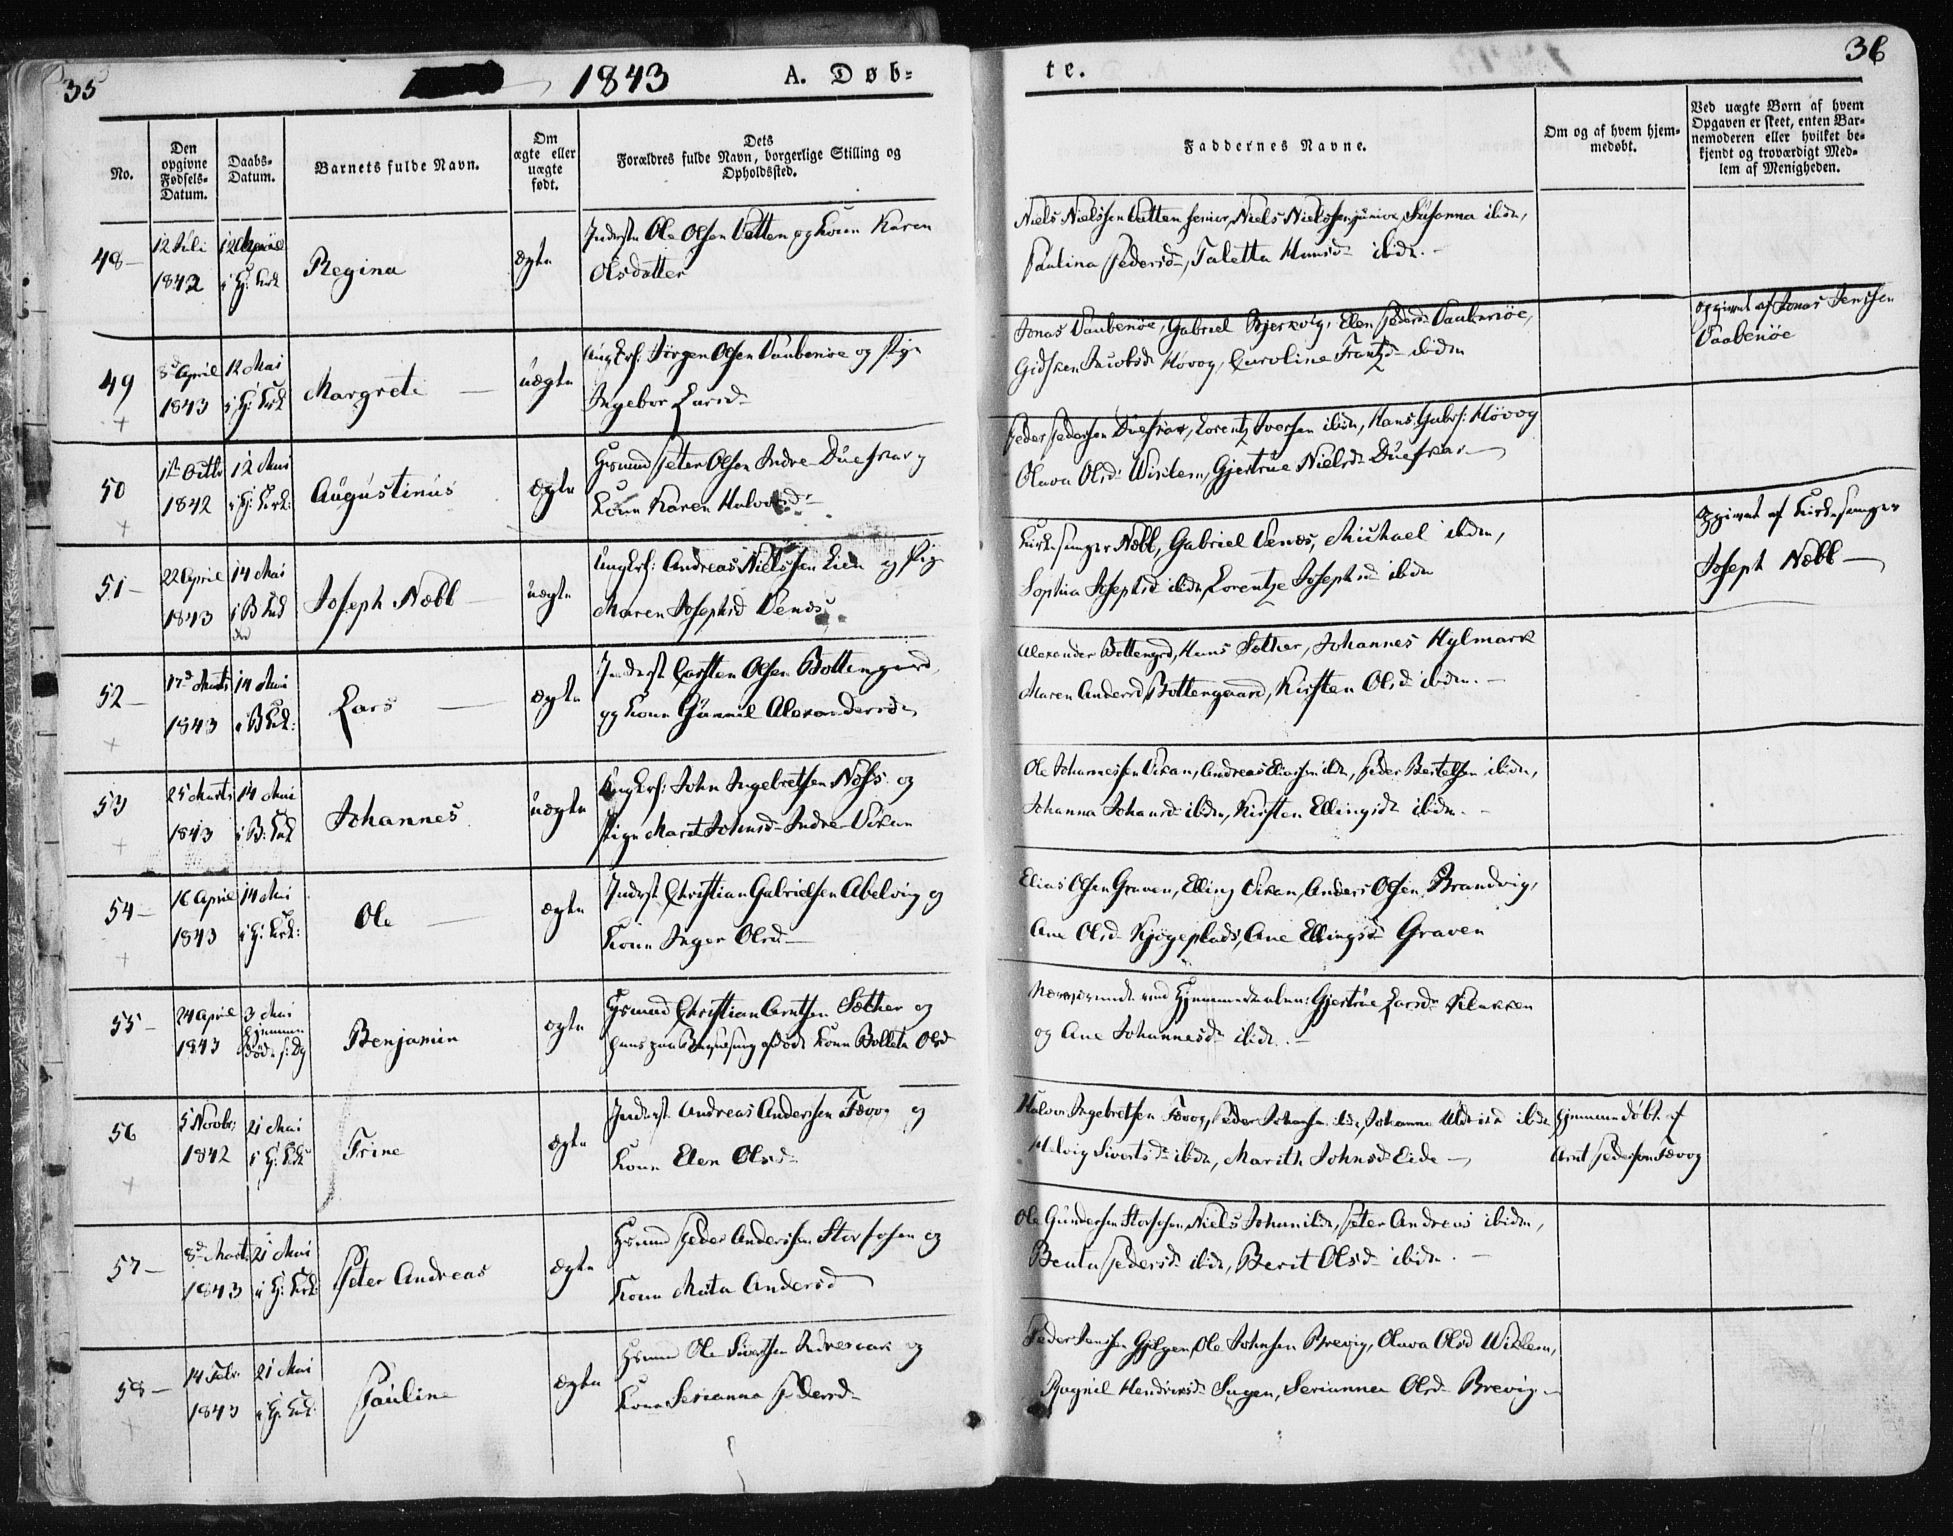 35
1843
A. Døb-
te.
36
No.
Den opgivne Fødsels-Datum.
Daabs-Datum.
Barnets fulde Navn.
Om ægte eller uægte født.
Dets Forældres fulde Navn, borgerlige Stilling og Opholdssted.
Faddernes Navne.
Om og af hvem hjemmedøbt.
Ved uægte Børn af hvem
Opgaven er skeet, enten Bar-
nemoderen eller hvilket be-
kjendt og troværdigt Med-
lem af Menigheden.
48 12 Juli 1842
Regina
ægte
Ole Olsen Vatten og Kone Karen
Olsdatter
Niels Nielssen Vatten senior, Niels Nielssen junior, Susanna ibidm,
Paulina Pedersd, Taletta ibidm.
49 8d April 1843 12 Mai
Margrete
uægte
Ungkrl: Jørgen Olsen Vaabenøe og Pige
Ingebor Larsd.
Jonas Vaabenøe, Gabriel Bjerkvig, Elen Pedersd Vaabenøe,
Gidsken Jacobsd Høvog, Caroline Frantzd ibidm
opgivet af Jonas Jenssen
Vaabenøe
50 1842 12 Mai
Augustinus
ægte
Gmand Peter Olsen Indre Duesvar og
Kone Karen Halvorsd
Peder Pedersen Duesvar, Lorentz Iversen ibidm, Hans Gabrs: Høvog
Olava Olsd Wiklem, Gjertrue Nielsd Duesvar
51 22 April 1843 14 Mai
Joseph Næbb
uægte
Ungkrl: Andreas Nielssen Eide og Pige
Maren Josephsd Venæs
Kirkesanger Næbb, Gabriel Venæs, Michael ibidm,
Sophia Josephsd ibidm, Lorentze Josephsd ibidm
opgivet af Kirkesanger
Joseph Næbb
52 17d Marts 1843 14 Mai
Lars
ægte
Inderst Carsten Olsen Bottengaard
og Kone Gunnil Alexandersd.
Alexander Bottengrd, Hans Sæther, Johannes Hylmark
Maren Andersd Bottengaard, Kirsten Olsd ibidm.
53 25 Marts 1843 14 Mai
Johannes
uægte
Ungkrl: John Ingebretsen Næss og
Pige Marit Johnsd Indre Vikan
Ole Johannessen Vikan, Andreas Eliassen ibdm, Peder Bertelsen ibidm,
Johanna Johansd ibidm, Kirsten Ellingsd ibidm.
54 16 April 1843 14 Mai
Ole
ægte
Inderst Christian Gabrielsen Abelvig og
Kone Inger Olsd
Elias Olsen Graven, Elling Vikan, Anders Olsen Brandvig,
Ane Olsd Kjøgeplads, Ane Ellingsd Graven
55 24 April 1843 3 Mai
Benjamin
ægte
Gmand Christian Arntsen Sæther og
hans Kone Bolleta Olsd
ved Hjemmedaaben: Gjertrue Larsd Klakken
og Ane Johannesd. ibid.
56 5 Novbr: 1842 21 Mai
Trine
ægte
Inderst Andreas Anderssen Fævog og
Kone Elen Olsd.
Halvor Ingebretsen Fævog, Peder Johansen ibdm, Johanna ibidm
Sivertsd ibidm, Marith Johnsd Eide
hjemmedøbt af
Arnt Pedersen Fævog
57 8d Marts 1843 21 Mai
Peter Andreas
ægte
Gmand Peder Anderssen Storsosen og
Kone Andersd
Ole Gundersen Storsosen, Niels ibidm, Peter Andreas ibidm,
Benta Pedersd ibidm, Berit Olsd ibidm.
58 14 Febr. 1843 21 Mai
Pauline
ægte
Gmand Ole Sivertsen og
Kone Serianna Pedersd.
Peder Jenssen Gjelgen, Ole Johnsen Brevig, Olava Olsd Wiklem,
Ragnil Hendriksd Sagen, Serianna Olsd Brevig